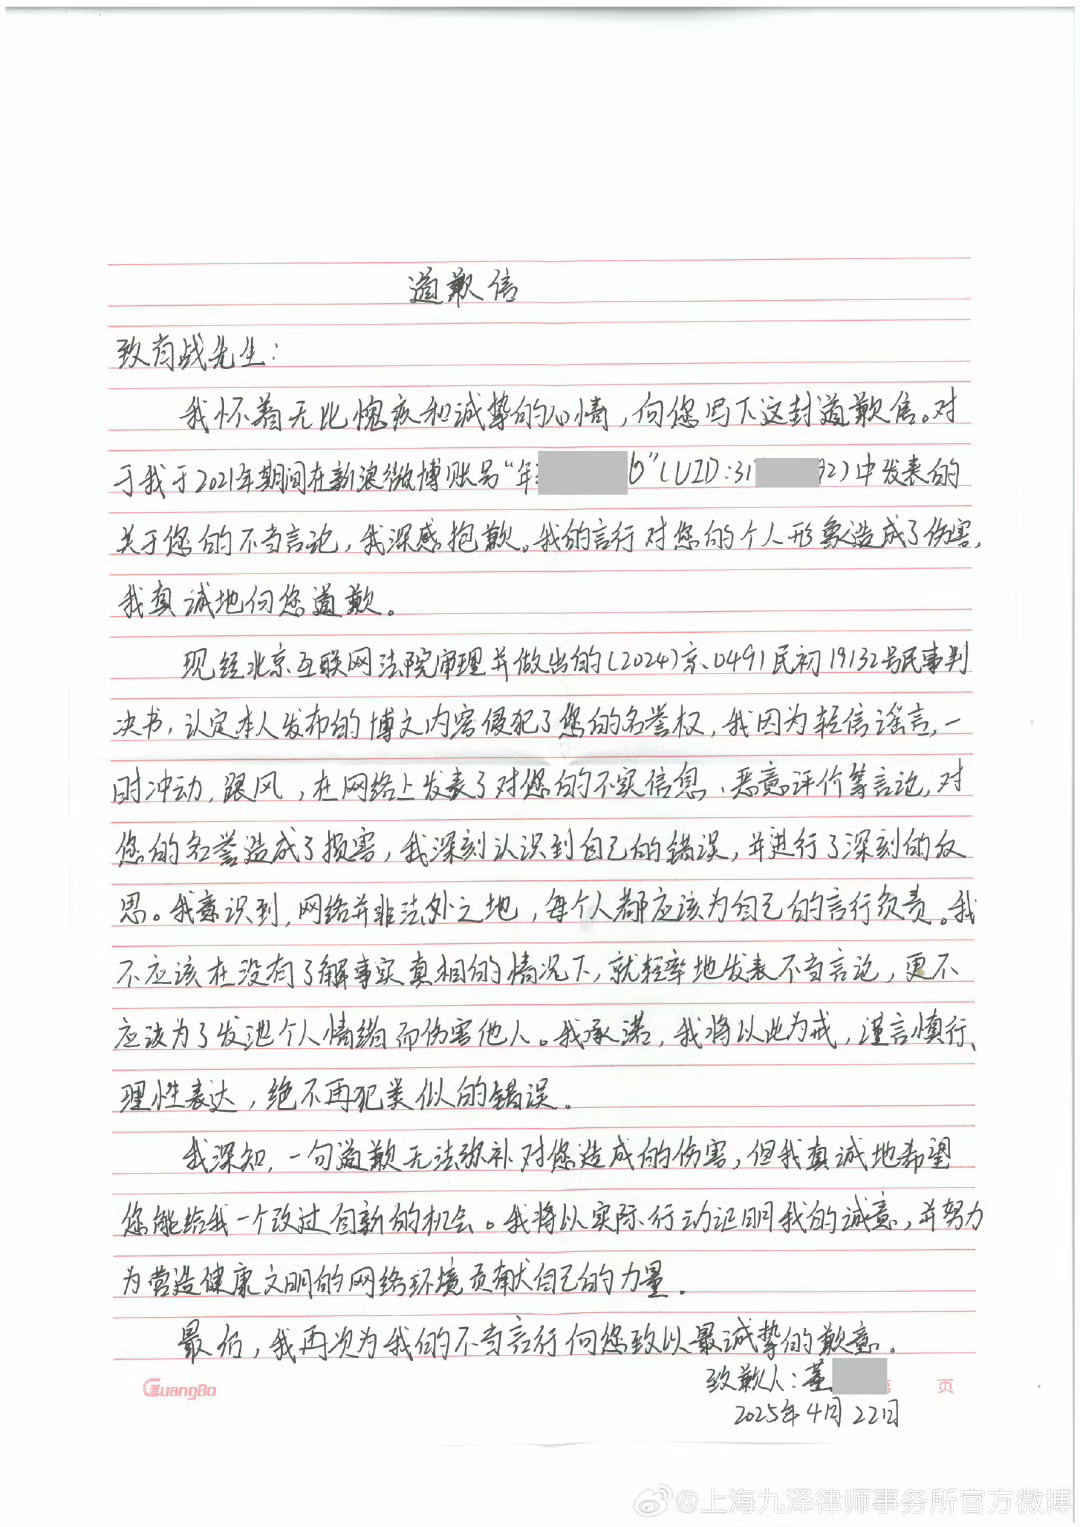 道歉信
致肖战先生:
我怀着无比愧疚和诚挚的心情,向您写下这封道歉信。对
于我于2021年期间在新浪微博账号“年 b”(UID:31 92)中发表的
关于您的不当言论,我深感抱歉。我的言行对您的个人形象造成了伤害,
我真诚地向您道歉。
现经北京互联网法院审理并做出的(2024)京0491民初19132号民事判
决书,认定本人发布的博文内容侵犯了您的名誉权,我因为轻信谣言,一
时冲动,跟风,在网络上发表了对您的不实信息、恶意评价等言论,对
您的名誉造成了损害,我深刻认识到自己的错误,并进行了深刻的反
思。我意识到,网络并非法外之地,每个人都应该为自己的言行负责。我
不应该在没有了解事实真相的情况下,就轻率地发表不当言论,更不
应该为了发泄个人情绪而伤害他人。我承诺,我将以此为戒,谨言慎行、
理性表达,绝不再犯类似的错误。
我深知,一句道歉无法弥补对您造成的伤害,但我真诚地希望
您能给我一个改过自新的机会。我将以实际行动证明我的诚意,并努力
为营造健康文明的网络环境贡献自己的力量。
最后,我再次为我的不当言行向您致以最诚挚的歉意。
致歉人:董
GuangBo 第 页
2025年4月22日
@上海九泽律师事务所官方微博